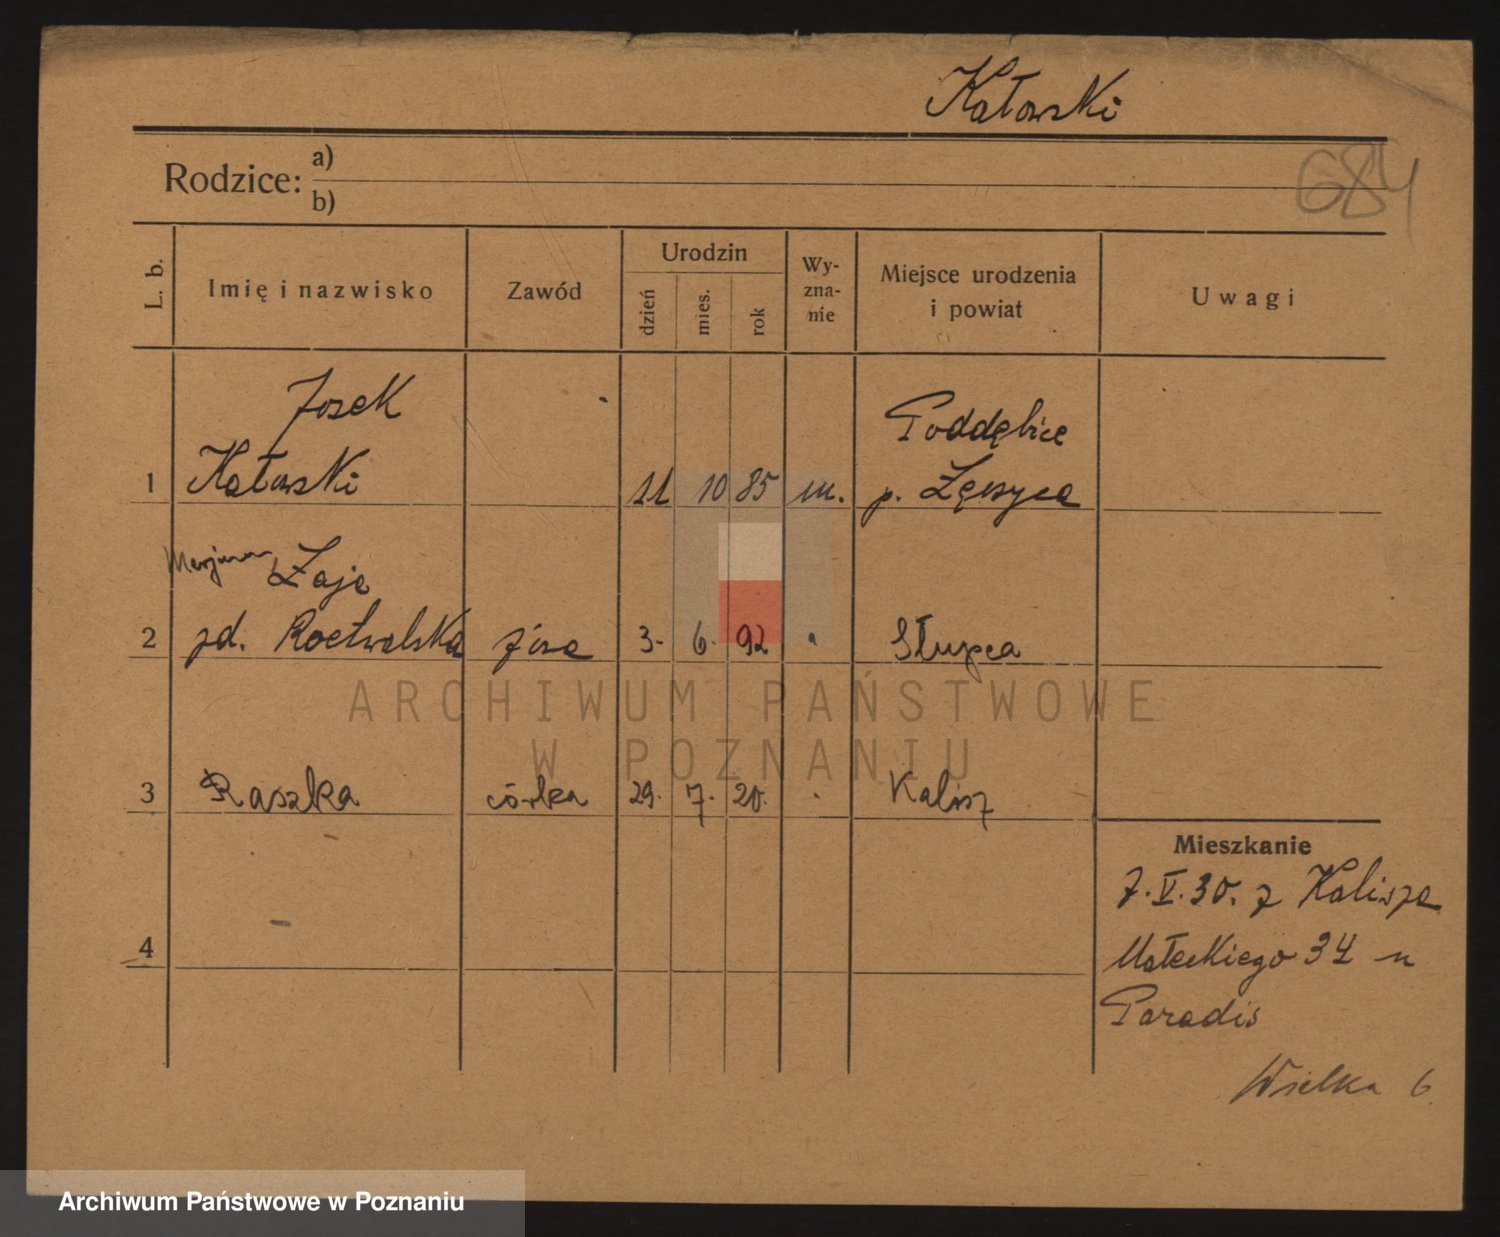 Kałowski
Rodzice: a)
b)
684
L. b.
Imię i nazwisko
Zawód
Urodzin
dzień
mies.
rok
Wy-
zna-
nie
Miejsce urodzenia
i powiat
Uwagi
Josek
Kałowski
1
11 10 85 m.
Poddębice
p. Łęczyca
Łaja
2
żona
3. 6. 92
Słupca
3
Raszka
córka
29. 7. 20.
Kalisz
4
Mieszkanie
7.V.30. z Kalisza
Małeckiego 34 u
Paradis
Wielka 6
ARCHIWUM PAŃSTWOWE
W POZNANIU
Archiwum Państwowe w Poznaniu